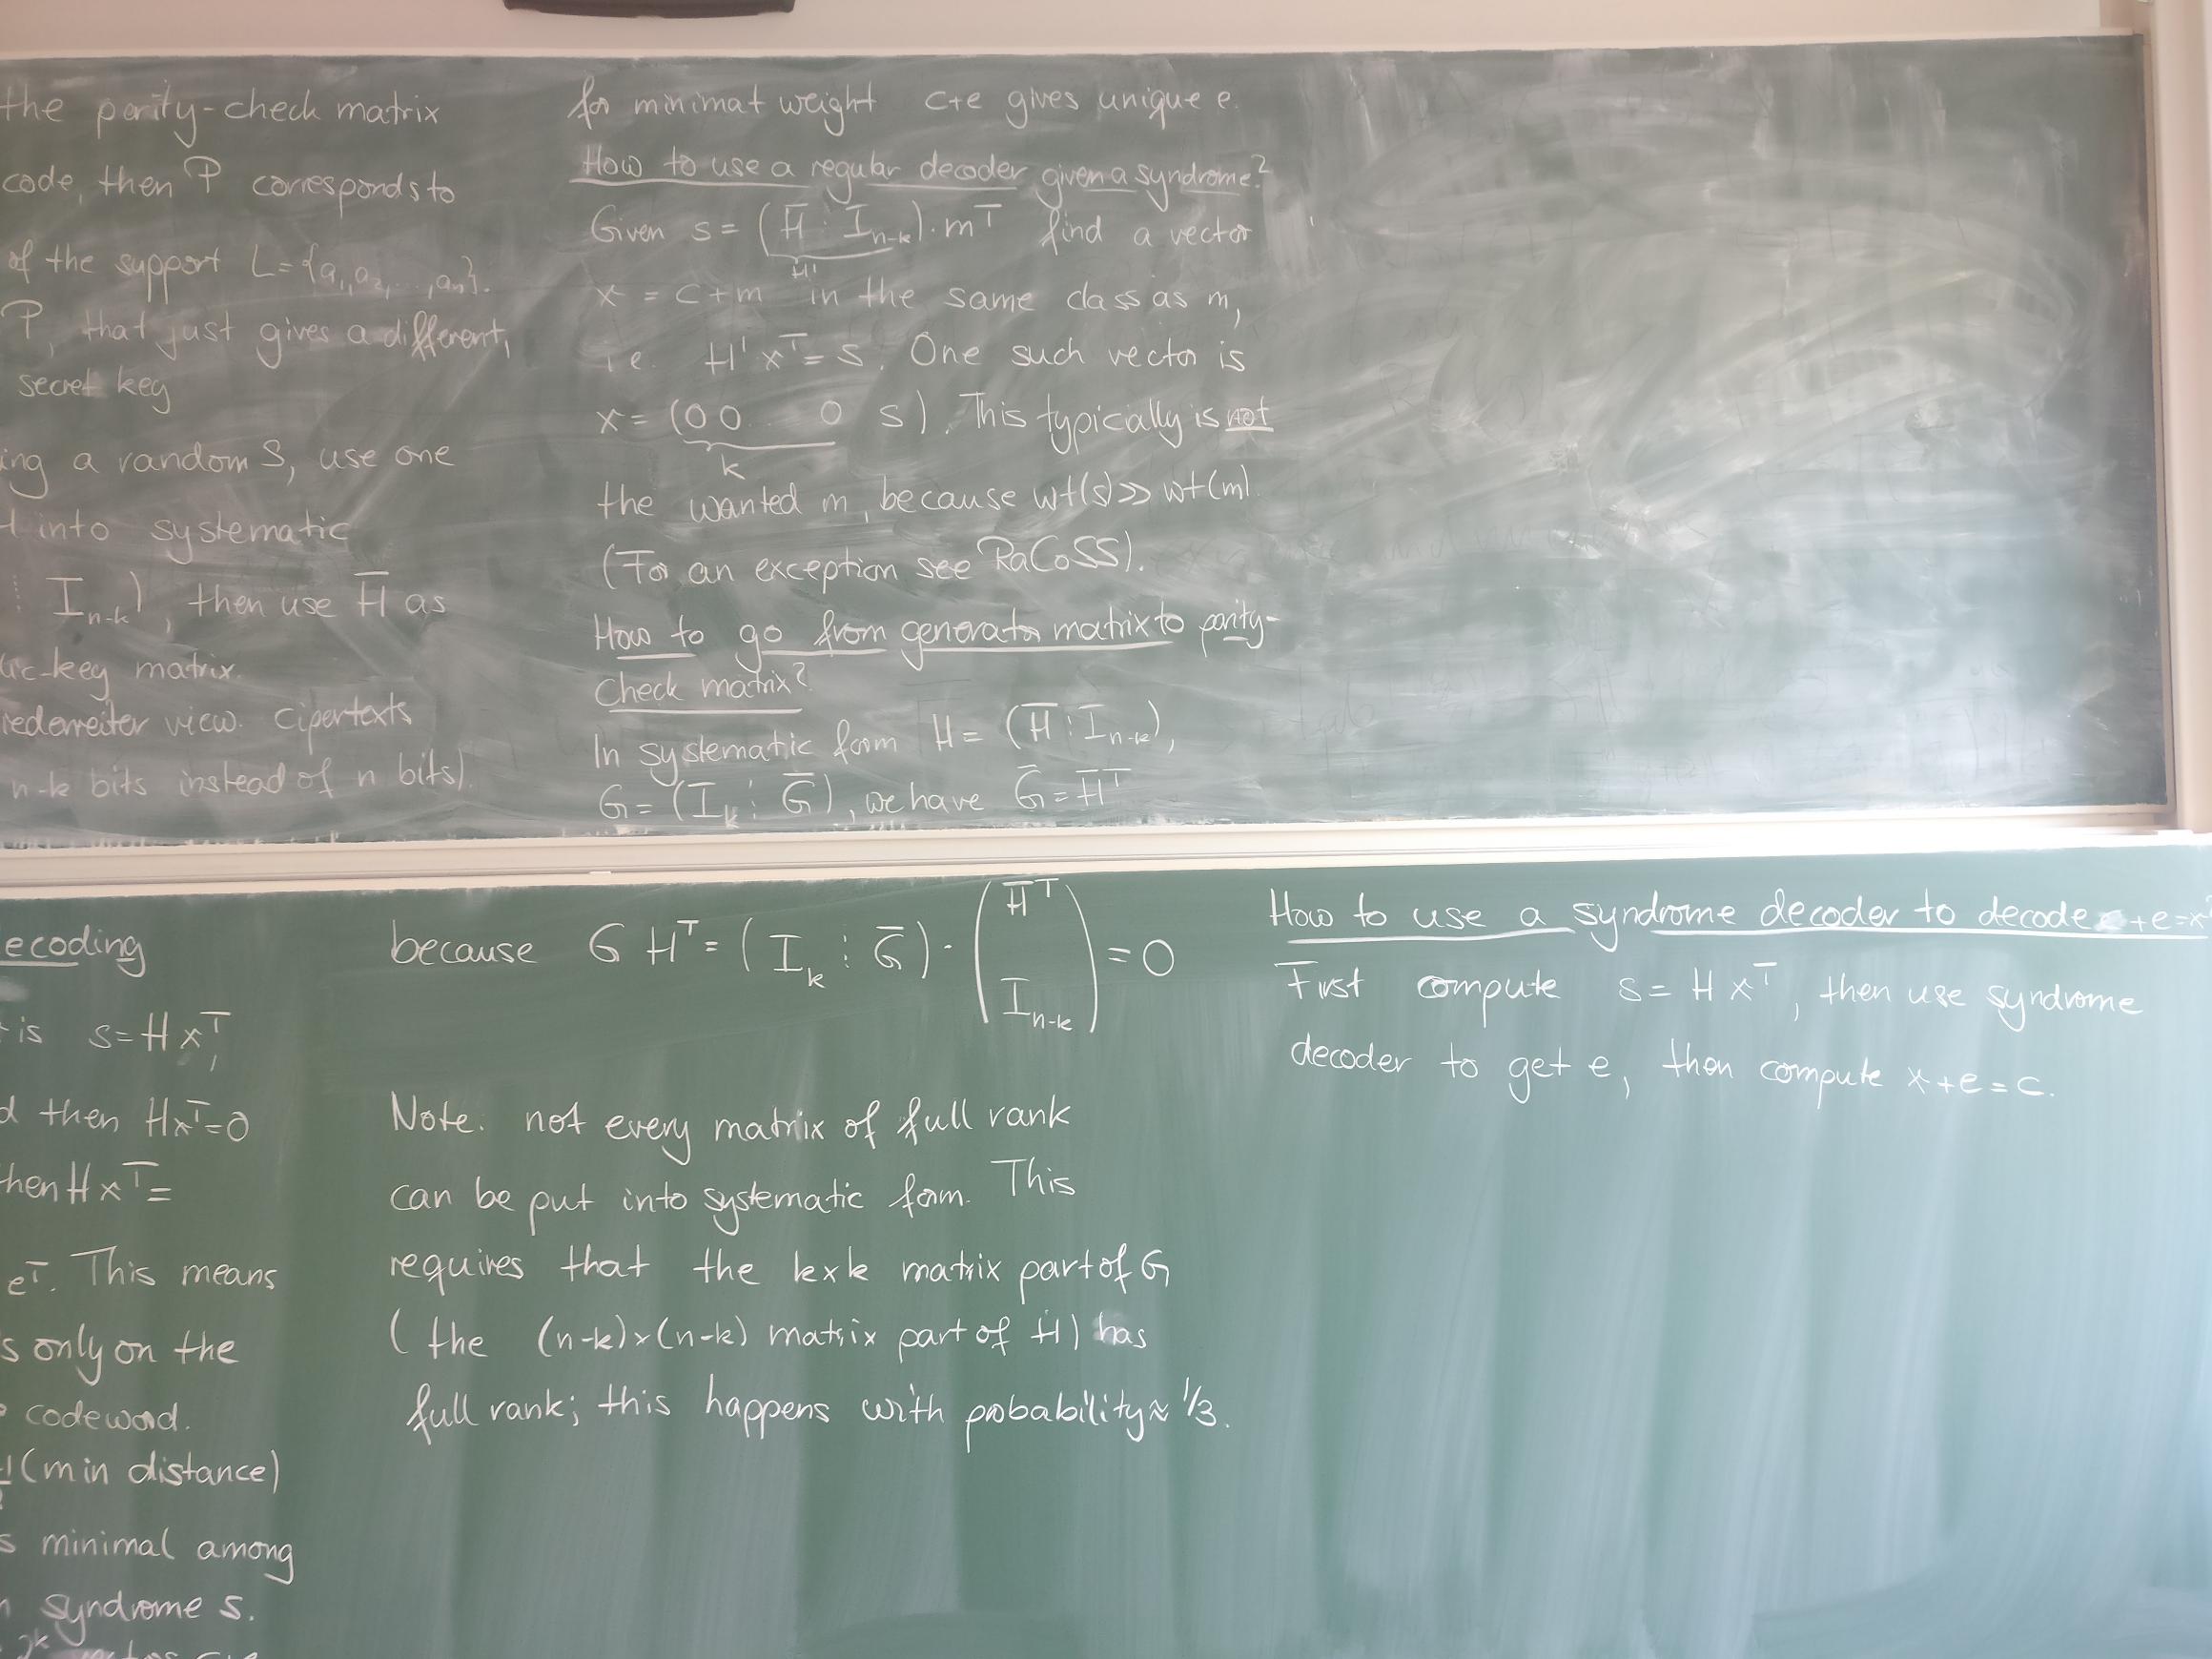 the parity-check matrix
code, then P corresponds to
of the support L={a₁,a₂,...,aₙ}.
P, that just gives a different,
secret key
ing a random S, use one
into systematic
⋮ Iₙ₋ₖ), then use H̄ as
ic-key matrix.
iederreiter view. cipertexts
n-k bits instead of n bits).
for minimat weight c+e gives unique e.
How to use a regular decoder given a syndrome?
Given s = (H̄ ⋮ Iₙ₋ₖ)·mᵀ find a vector
H'
x = c+m in the same class as m,
i.e. H'xᵀ=s. One such vector is
x = (00 0 s). This typically is not
k
the wanted m, because wt(s)≫wt(m).
(For an exception see RaCoSS).
How to go from generator matrix to parity-
check matrix?
In systematic form H = (H̄ ⋮ Iₙ₋ₖ),
G=(Iₖ ⋮ Ḡ), we have Ḡ=H̄ᵀ
ecoding
is s=Hxᵀ,
d then Hxᵀ=0
hen Hxᵀ=
eᵀ. This means
s only on the
codeword.
(min distance)
s minimal among
syndrome s.
because G Hᵀ = (Iₖ ⋮ Ḡ)·(H̄ᵀ Iₙ₋ₖ) = 0
Note: not every matrix of full rank
can be put into systematic form. This
requires that the k×k matrix part of G
(the (n-k)×(n-k) matrix part of H) has
full rank; this happens with probability ≈ 1/3.
How to use a syndrome decoder to decode c+e=x?
First compute s = H xᵀ, then use syndrome
decoder to get e, then compute x+e=c.